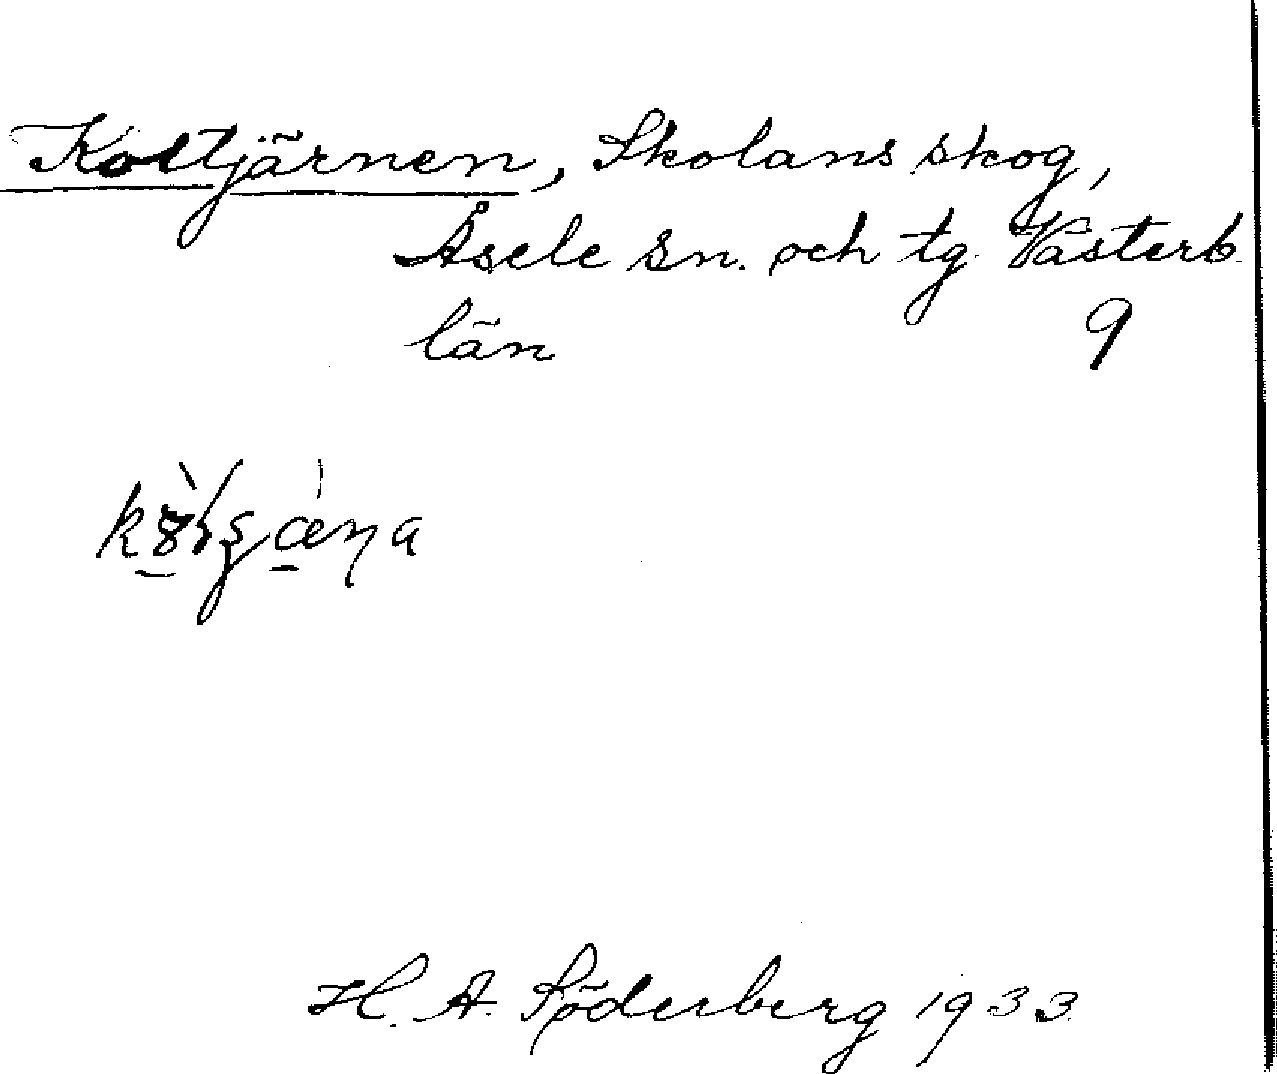 Koltjärnen, Skolans skog,
Åsele sn. och tg. Västerb.
län 9
H. A. Söderberg 1933